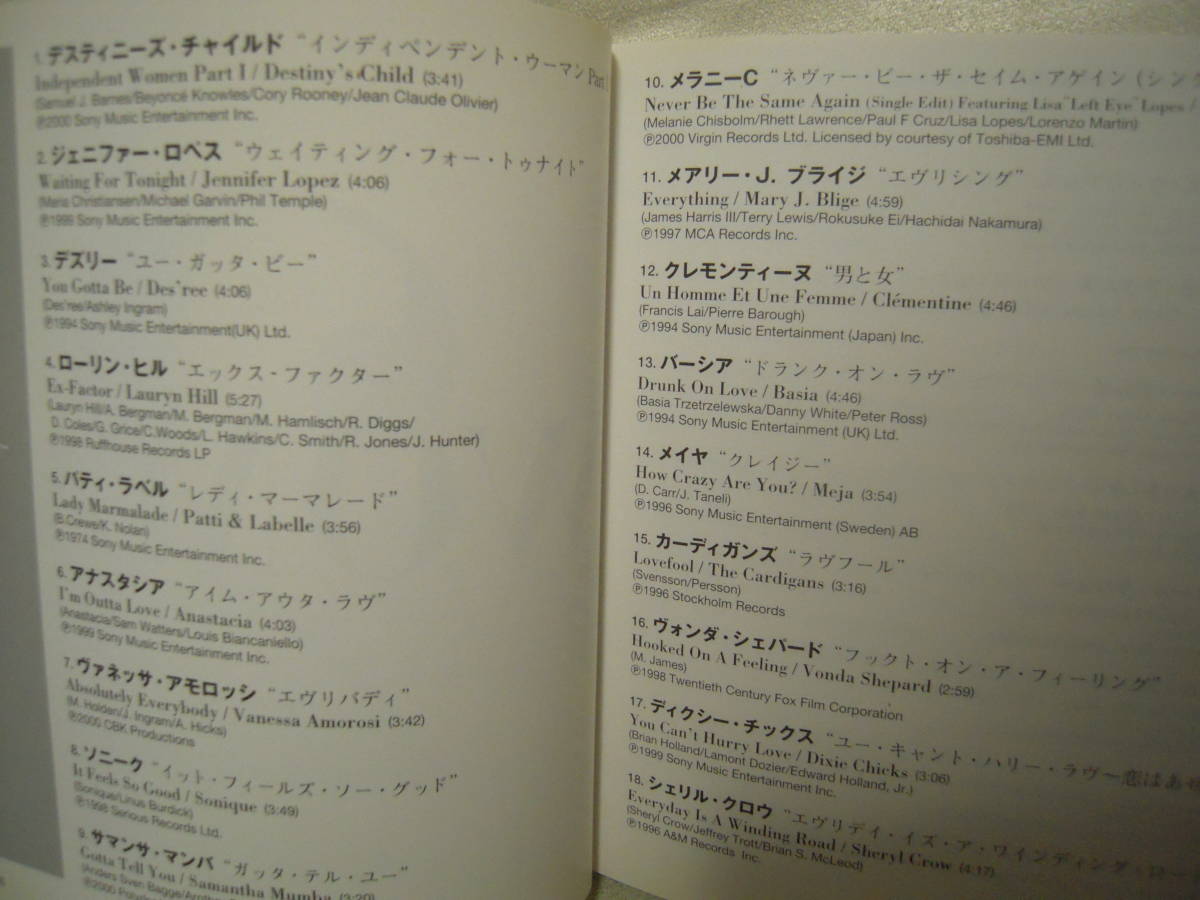 1. デスティニーズ・チャイルド “インディペンデント・ウーマン Part
Independent Women Part I / Destiny's Child (3:41)
(Samuel J. Barnes/Beyoncé Knowles/Cory Rooney/Jean Claude Olivier)
℗2000 Sony Music Entertainment Inc.
2. ジェニファー・ロペス “ウェイティング・フォー・トゥナイト”
Waiting For Tonight / Jennifer Lopez (4:06)
(Maria Christiansen/Michael Garvin/Phil Temple)
℗1999 Sony Music Entertainment Inc.
3. デズリー “ユー・ガッタ・ビー”
You Gotta Be / Des'ree (4:06)
(Des'ree/Ashley Ingram)
℗1994 Sony Music Entertainment(UK) Ltd.
4. ローリン・ヒル “エックス-ファクター”
Ex-Factor / Lauryn Hill (5:27)
(Lauryn Hill/A. Bergman/M. Bergman/M. Hamlisch/R. Diggs/
D. Coles/G. Grice/C.Woods/L. Hawkins/C. Smith/R. Jones/J. Hunter)
℗1998 Ruffhouse Records LP
5. パティ・ラベル “レディ・マーマレード”
Lady Marmalade / Patti & Labelle (3:56)
(B.Crewe/K. Nolan)
℗1974 Sony Music Entertainment Inc.
6. アナスタシア “アイム・アウタ・ラヴ”
I'm Outta Love / Anastacia (4:03)
(Anastacia/Sam Watters/Louis Biancaniello)
℗1999 Sony Music Entertainment Inc.
7. ヴァネッサ・アモロッシ “エヴリバディ”
Absolutely Everybody / Vanessa Amorosi (3:42)
(M. Holden/J. Ingram/A. Hicks)
℗2000 CBK Productions
8. ソニーク “イット・フィールズ・ソー・グッド”
It Feels So Good / Sonique (3:49)
(Sonique/Linus Burdick)
℗1998 Serious Records Ltd.
9. サマンサ・マンバ “ガッタ・テル・ユー”
Gotta Tell You / Samantha Mumba (3:20)
(Anders Sven Bagge/
℗2000
10. メラニーC “ネヴァー・ビー・ザ・セイム・アゲイン (シング
Never Be The Same Again (Single Edit) Featuring Lisa "Left Eye" Lopes /
(Melanie Chisbolm/Rhett Lawrence/Paul F Cruz/Lisa Lopes/Lorenzo Martin)
℗2000 Virgin Records Ltd. Licensed by courtesy of Toshiba-EMI Ltd.
11. メアリー・J. ブライジ “エヴリシング”
Everything / Mary J. Blige (4:59)
(James Harris III/Terry Lewis/Rokusuke Ei/Hachidai Nakamura)
℗1997 MCA Records Inc.
12. クレモンティーヌ “男と女”
Un Homme Et Une Femme / Clémentine (4:46)
(Francis Lai/Pierre Barough)
℗1994 Sony Music Entertainment (Japan) Inc.
13. バーシア “ドランク・オン・ラヴ”
Drunk On Love / Basia (4:46)
(Basia Trzetrzelewska/Danny White/Peter Ross)
℗1994 Sony Music Entertainment (UK) Ltd.
14. メイヤ “クレイジー”
How Crazy Are You? / Meja (3:54)
(D. Carr/J. Taneli)
℗1996 Sony Music Entertainment (Sweden) AB
15. カーディガンズ “ラヴフール”
Lovefool / The Cardigans (3:16)
(Svensson/Persson)
℗1996 Stockholm Records
16. ヴォンダ・シェパード “フックト・オン・ア・フィーリング”
Hooked On A Feeling / Vonda Shepard (2:59)
(M. James)
℗1998 Twentieth Century Fox Film Corporation
17. ディクシー・チックス “ユー・キャント・ハリー・ラヴ〜恋はあせ
You Can't Hurry Love / Dixie Chicks (3:06)
(Brian Holland/Lamont Dozier/Edward Holland, Jr.)
℗1999 Sony Music Entertainment Inc.
18. シェリル・クロウ “エヴリデイ・イズ・ア・ワインディング・ロー
Everyday Is A Winding Road / Sheryl Crow (4:17)
(Sheryl Crow/Jeffrey Trott/Brian S. McLeod)
℗1996 A&M Records Inc.